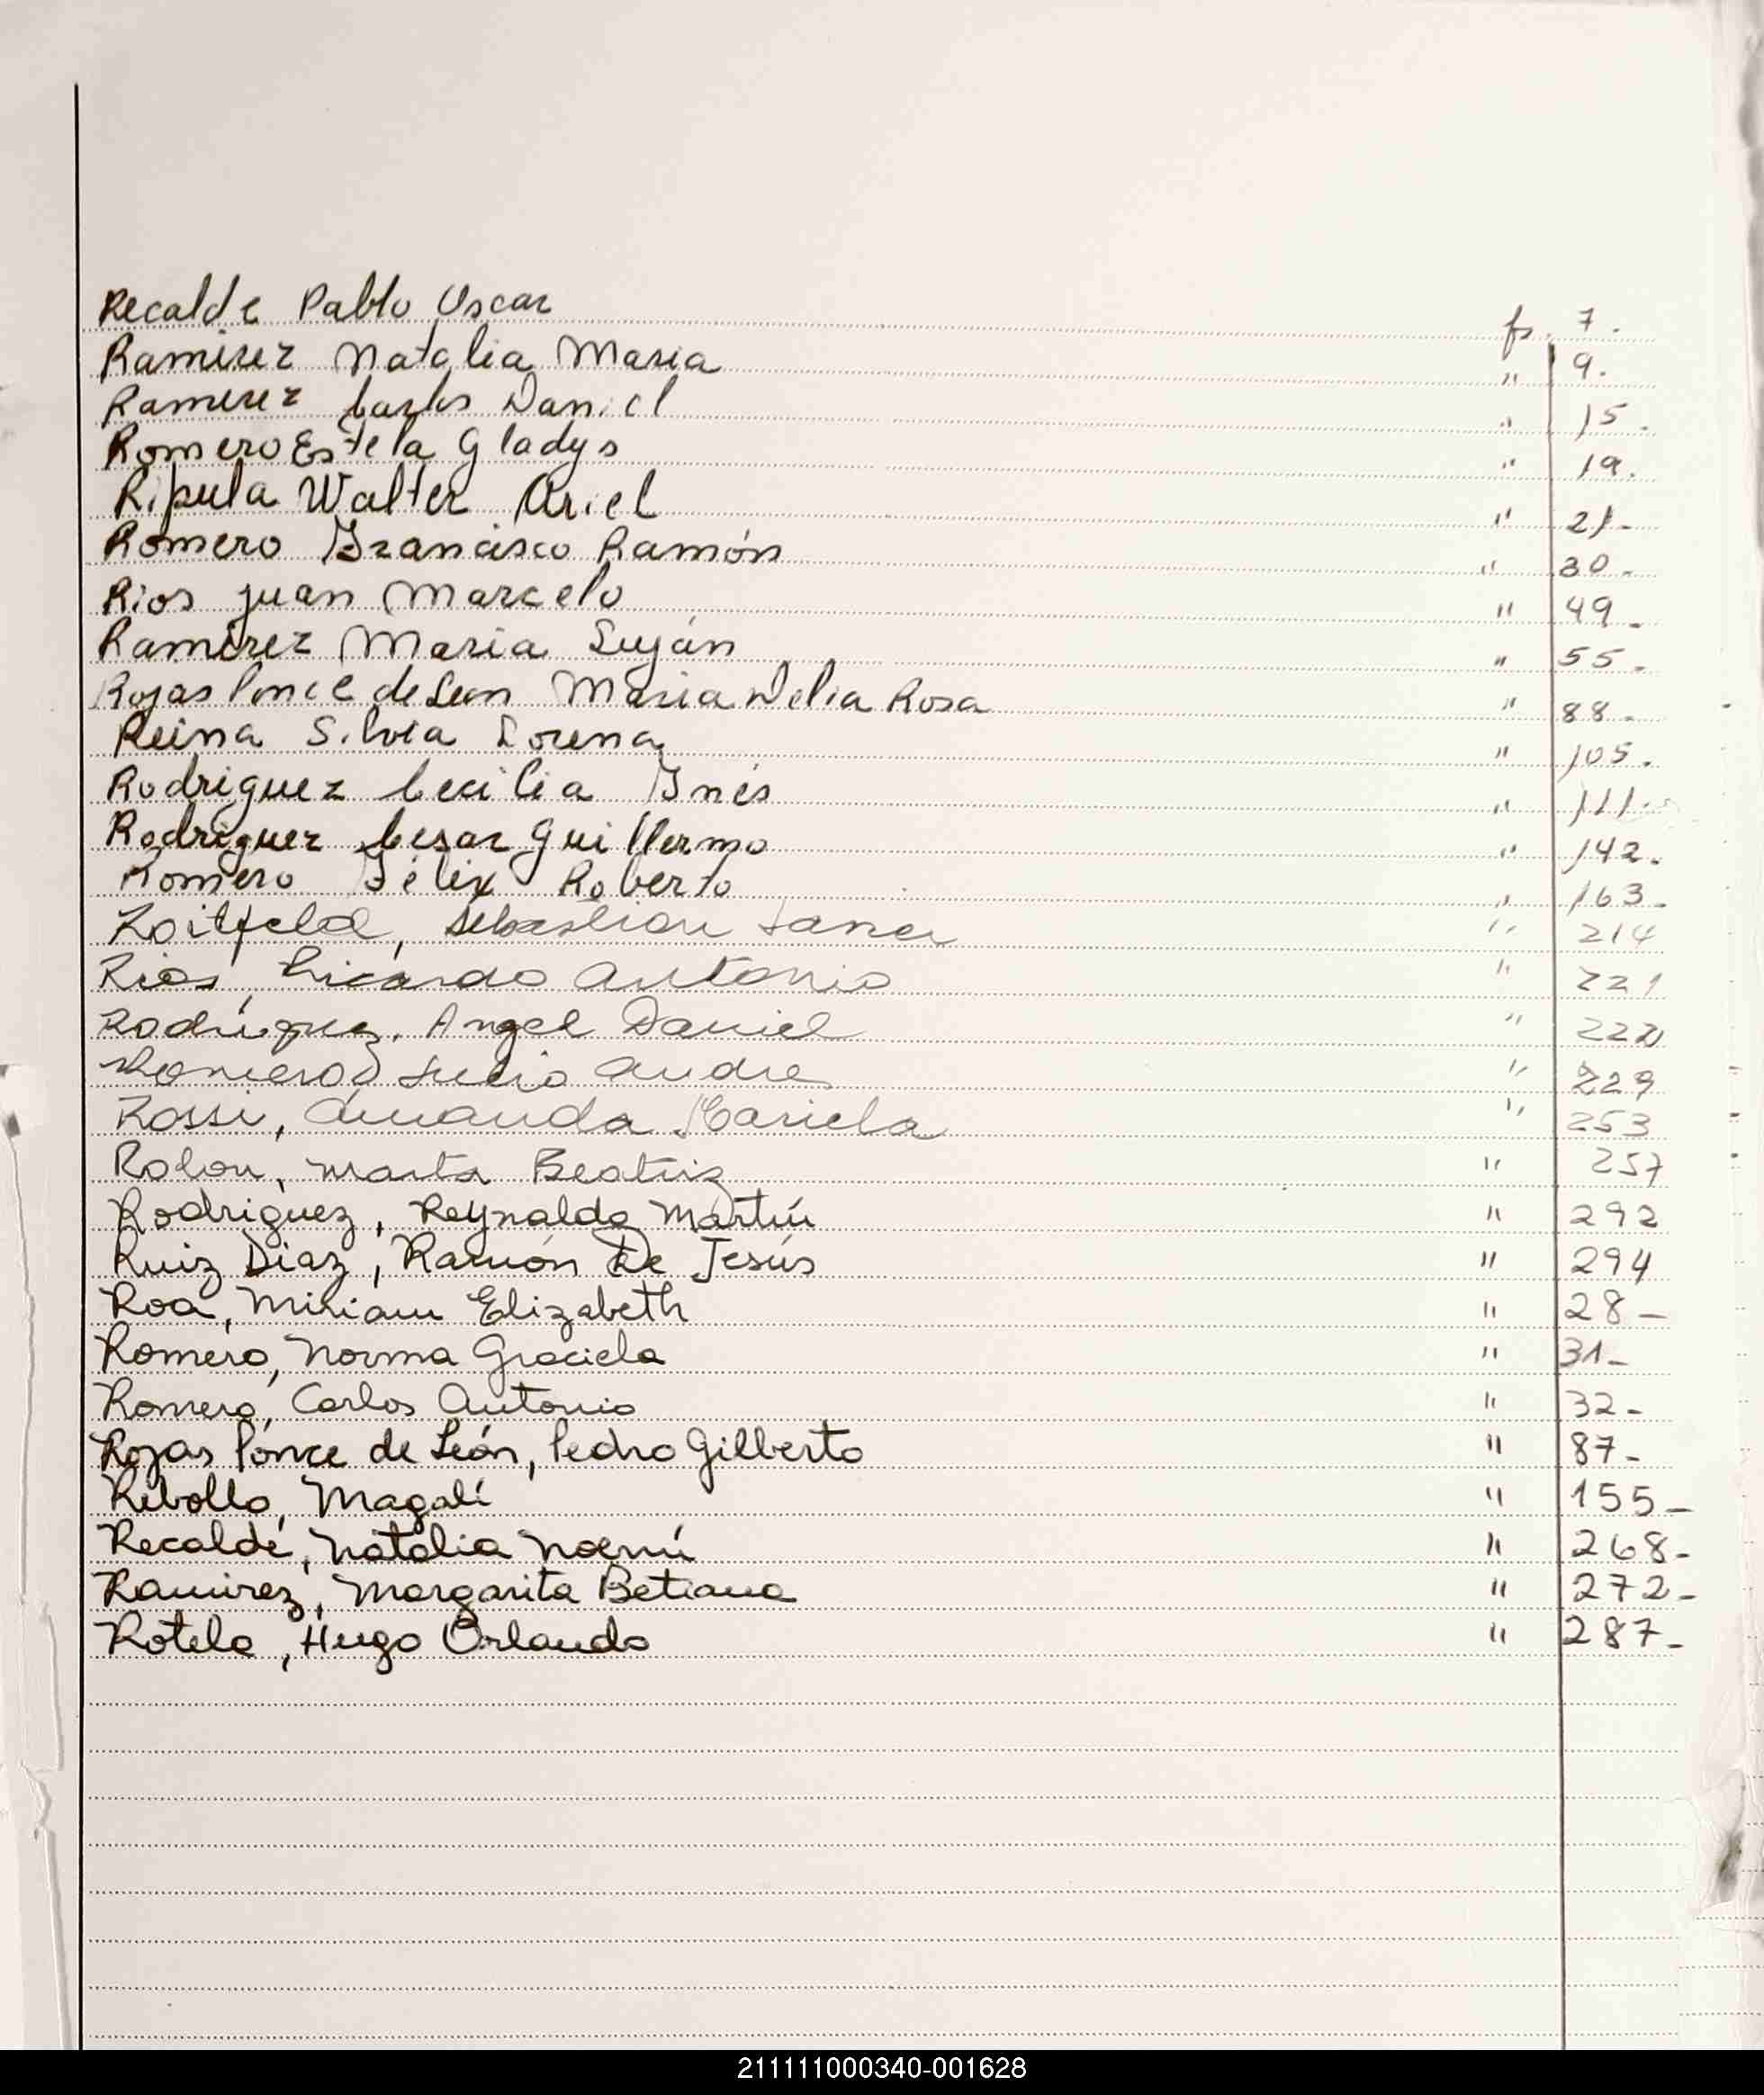 Recalde Pablo Oscar fs. 7.
Ramirez Natalia Maria " 9.
Ramirez Carlos Daniel " 15.
Romero Estela Gladys " 19.
Ripula Walter Ariel " 21-
Romero Francisco Ramón " 30-
Rios Juan Marcelo " 49-
Ramirez Maria Luján " 55-
Rojas Ponce de Leon Maria Delia Rosa " 88-
Reina Silvia Lorena " 105.
Rodriguez Cecilia Inés " 111-
Rodriguez Cesar Guillermo " 142.
Romero Félix Roberto " 163-
Roitfeld, Sebastian " 214
Rios, Ricardo Antonio " 221
Rodriguez, Angel Daniel " 222
Romero, Lucio Andres " 229
Rossi, Amanda Mariela " 253
Rolon, Marta Beatriz " 257
Rodriguez, Reynaldo Martín " 292
Ruiz Diaz, Ramón De Jesús " 294
Roa, Miriam Elizabeth " 28-
Romero, Norma Graciela " 31-
Romero, Carlos Antonio " 32-
Rojas Ponce de León, Pedro Gilberto " 87-
Rebollo, Magalí " 155-
Recalde, Natalia Noemí " 268-
Ramirez, Margarita Betiana " 272-
Rotela, Hugo Orlando " 287-
211111000340-001628